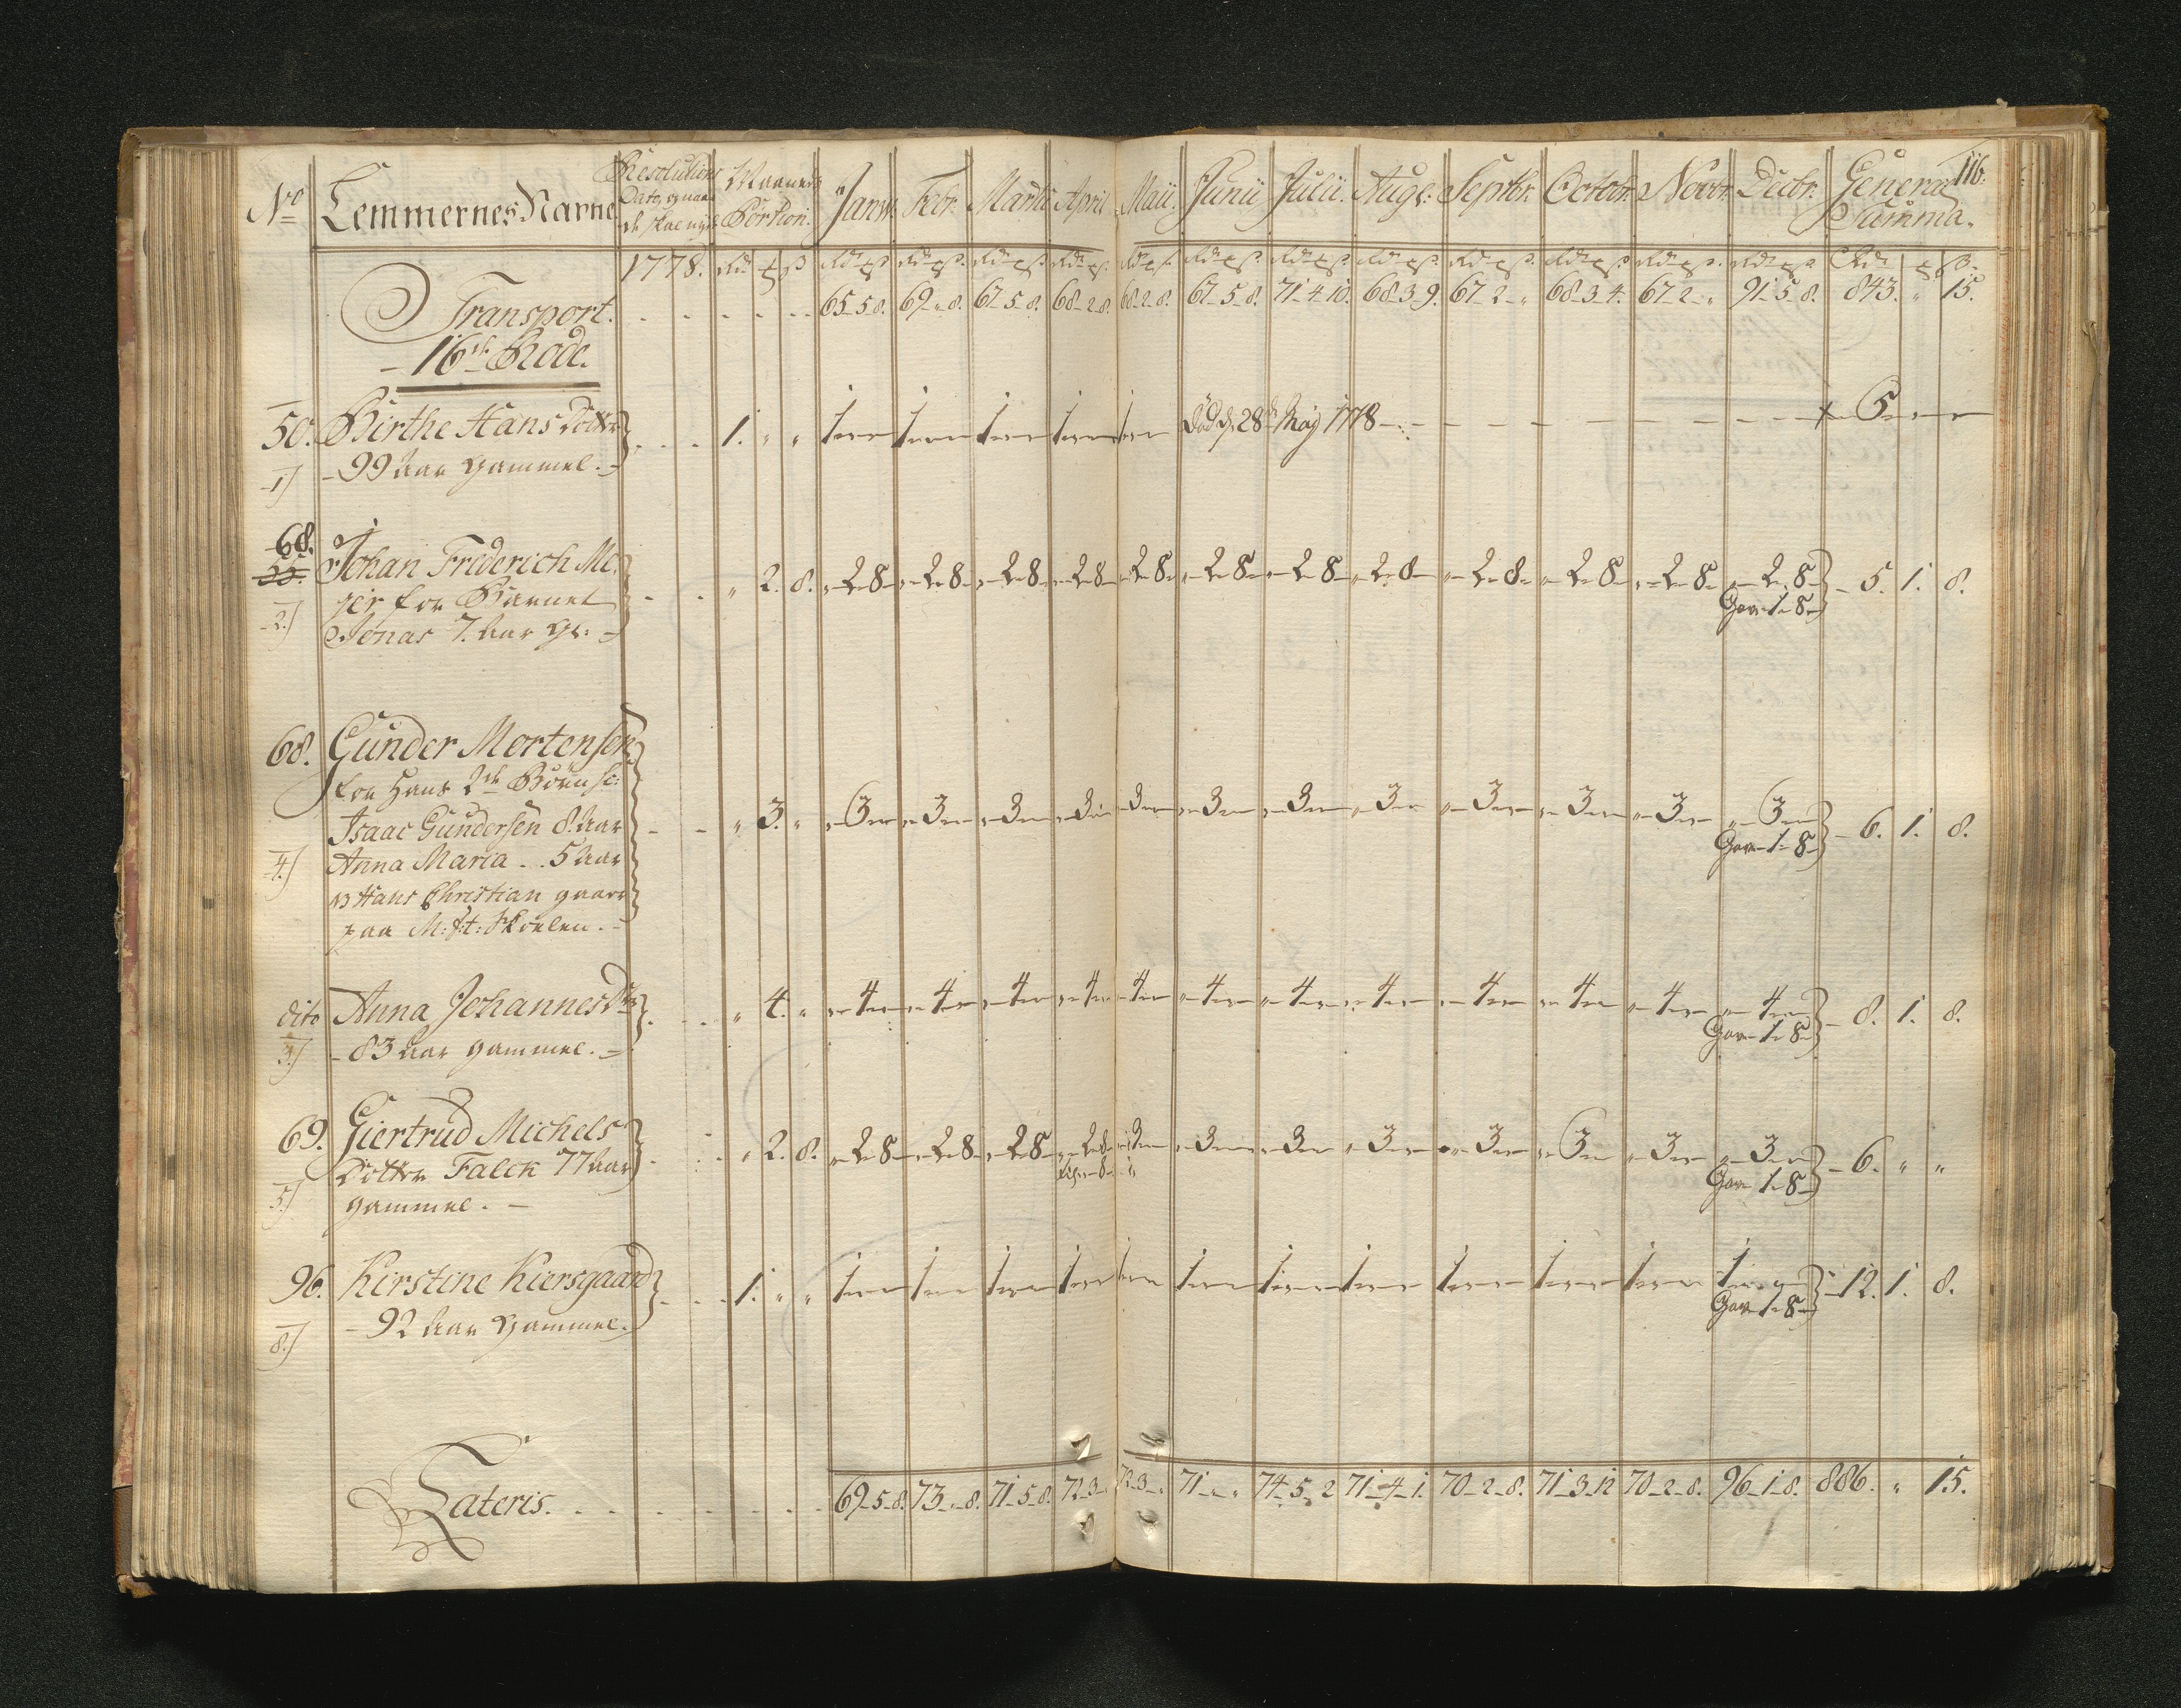 116.
No Lemmernes Navne Resolutions Dato, og naar de skal nyde Maaneds Portion. Janu: Febr: Martii April Maii. Junii Julii. Aug: Septbr. Octobr. Novbr. Decbr. General Summa.
1778. Rdr ß
Transport. 65-5-8. 69-"-8. 67-5-8. 68-2-8. 68-2-8. 67-5-8. 71-4-10. 68-3-9. 67-2-" 68-3-4. 67-2-" 91-5-8. 843. " 15.
- 16de Rode.
50. Birthe Hans Dotter 1. " " 1 1 1 1 1 Död d. 28de Maij 1778 - 5 " "
1) - 99 aar gammel. -
68.
55. Johan Friderich Me-
2) jer for Barnet " 2. 8. 2-8 2-8 2-8 2-8 2-8 2-8 2-8 2-8 2-8 2-8 2-8 2-8 - 5. 1. 8.
Jonas 7. aar gl: - Gav 1-8
68. Gunder Mortensen
for hans 2de Börn sc:
Isaac Gundersen 8. aar " 3. " 3 3 3 3 3 3 3 3 3 3 3 3 - 6. 1. 8.
4) Anna Maria - . 5 aar Gav 1-8
Hans Christian gaaer
paa M: f: t: Skolen. -
dito Anna Johannes Dtr " 4. " 4 4 4 4 4 4 4 4 4 4 4 4 - 8. 1. 8.
3) - 83 aar gammel. - Gav 1-8
69. Giertrud Michels
Dotter Falck 77 aar " 2. 8. 2-8 2-8 2-8 2-8 3 3 3 3 3 3 3 3 - 6. " "
5) gammel. - Gav 1-8
96. Kirstine Kiersgaard 1. " " 1 1 1 1 1 1 1 1 1 1 1 1 - 12. 1. 8.
8) - 92 aar gammel. Gav 1-8
Lateris. 69-5-8. 73-"-8. 71-5-8. 72-3-" 72-3-" 71-"-" 74-5-2 71-4-1. 70-2-8. 71-3-12 70-2-8. 96-1-8. 886. " 15.